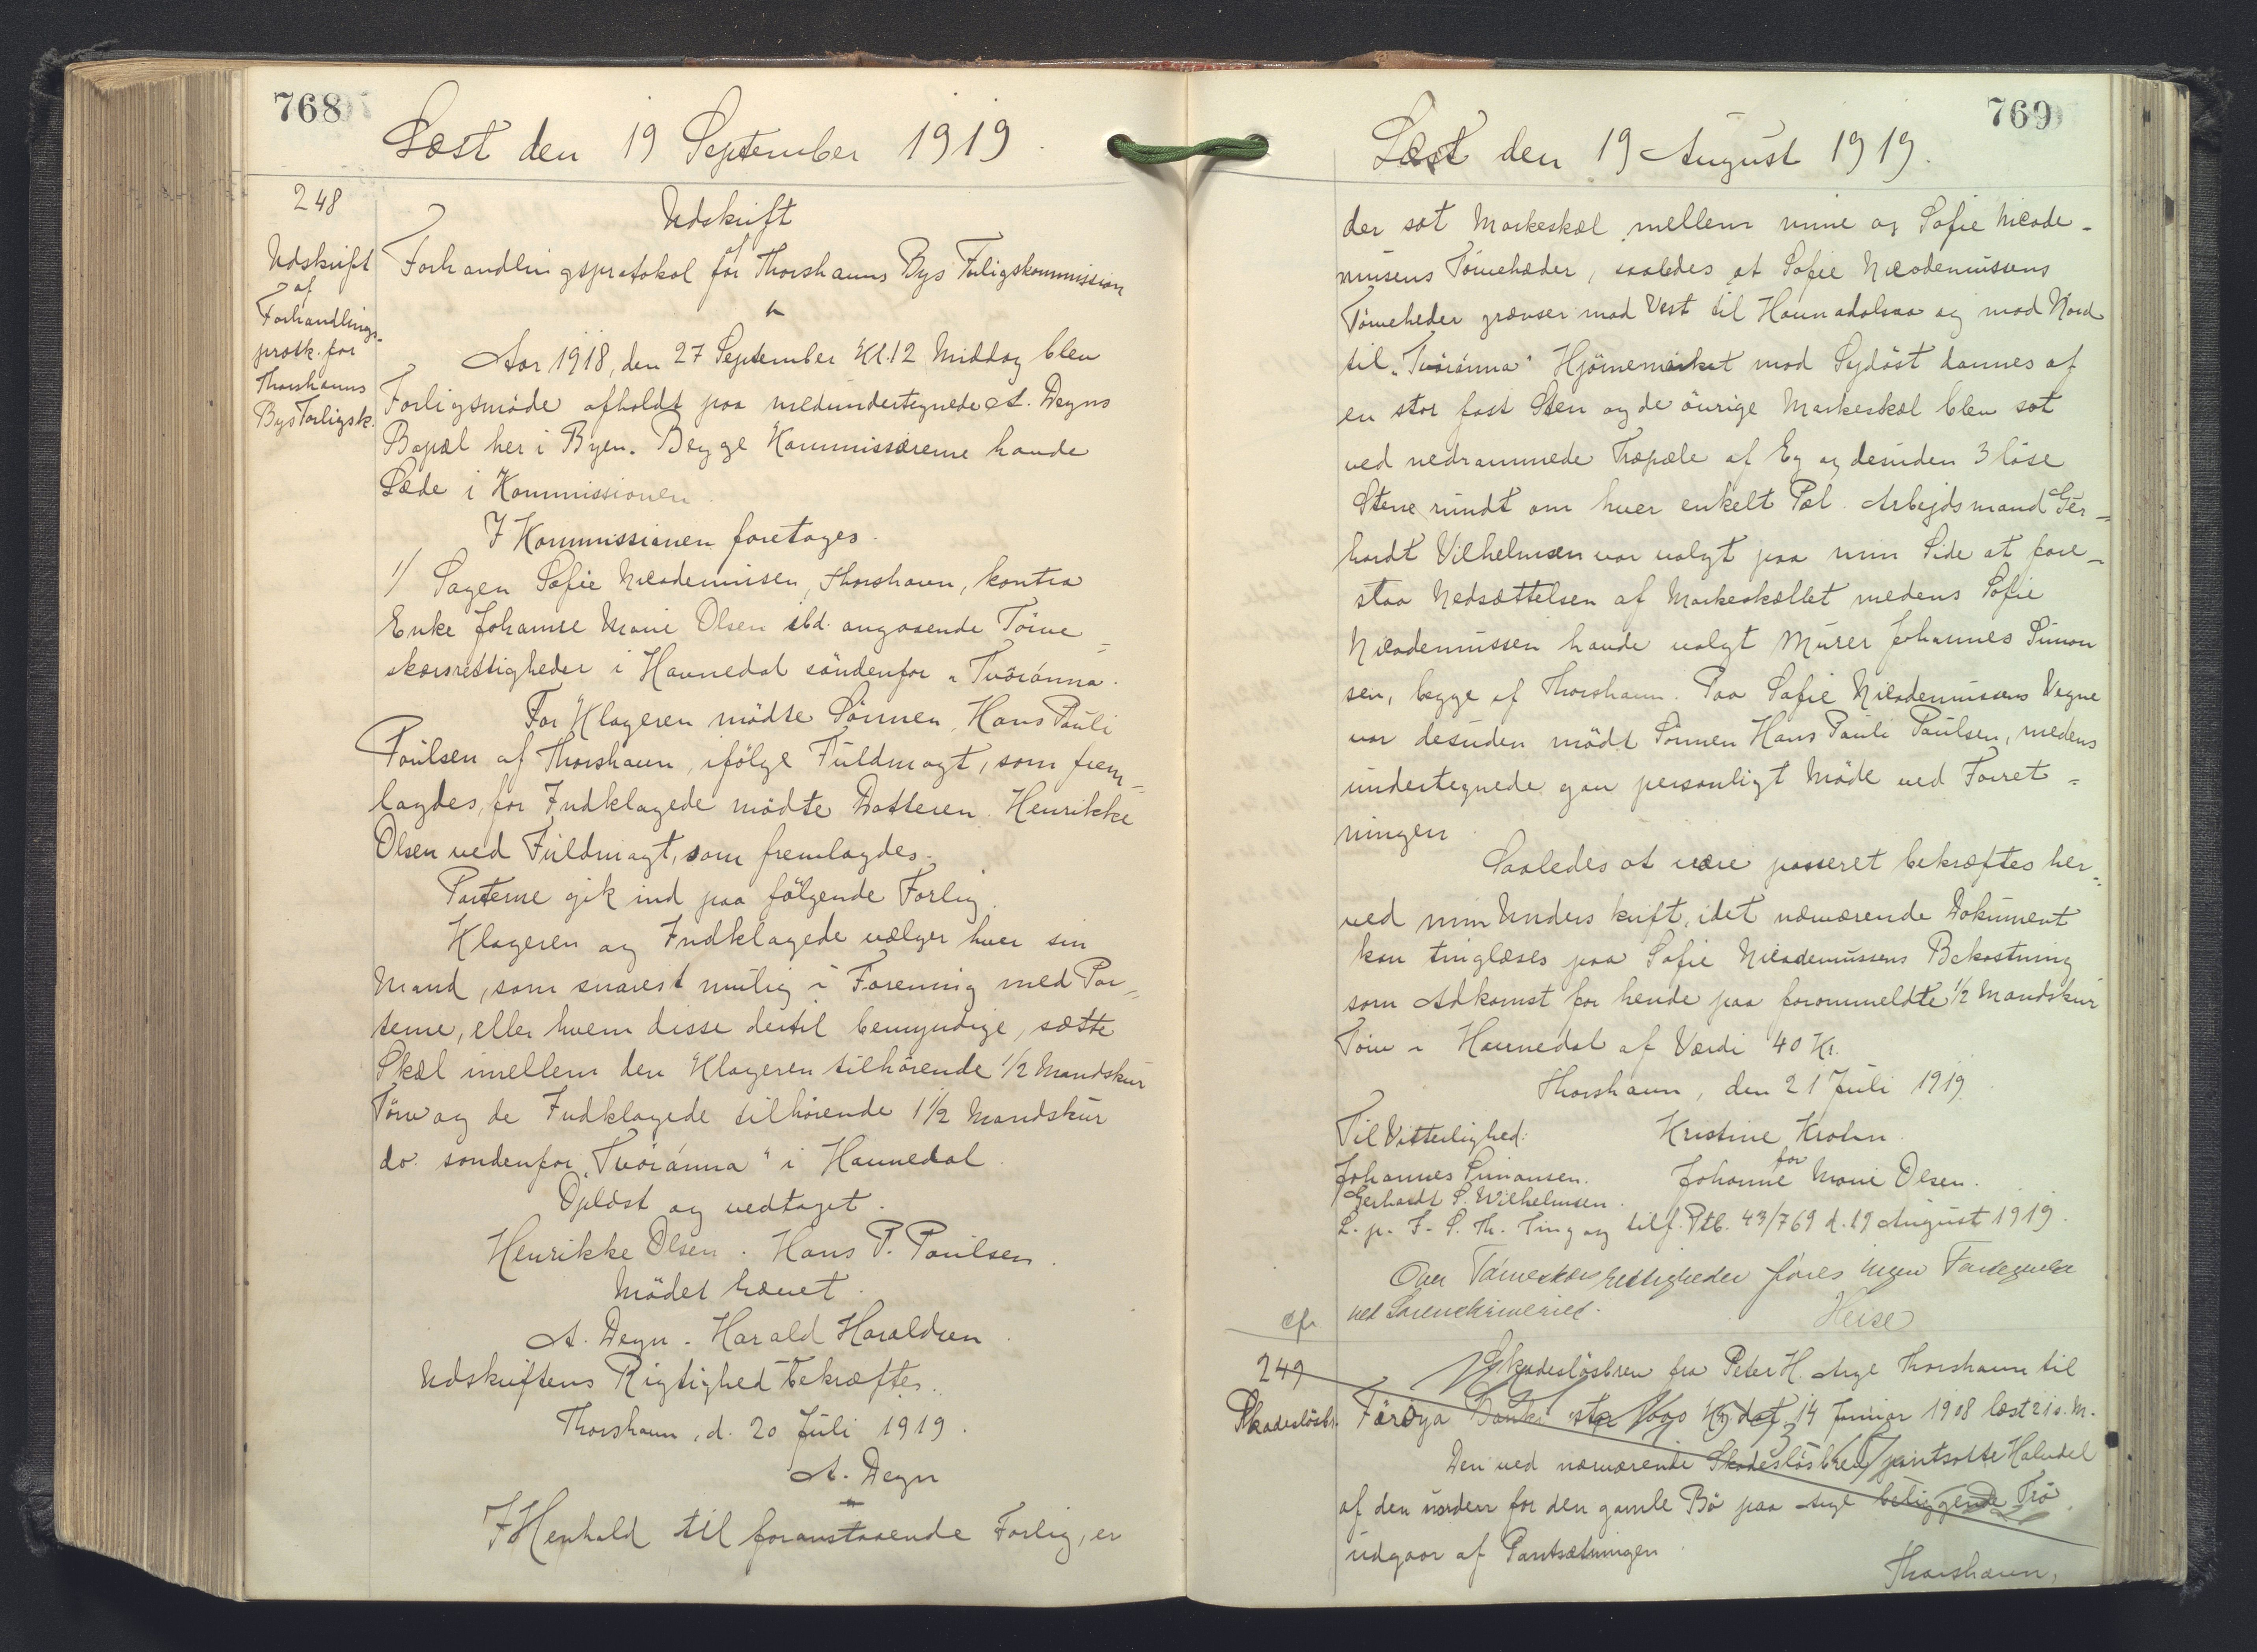 768
Læst den 19 September 1919.
248
Udskrift
af
Forhandlings-
protk. for
Thorshavns
Bys Forligsk.
Udskrift
af
Forhandlingsprotokol for Thorshavns Bys Forligskommission
Aar 1918, den 27 September Kl. 12 Middag blev
Forligsmöde afholdt paa medundertegnede A. Degns
Bopæl her i Byen. Begge Kommissærerne havde
Sæde i Kommissionen.
I Kommissionen foretages.
1/ Sagen Sofie Nicodemusen, Thorshavn, kontra
Enke Johanne Marie Olsen ibd. angaaende Törve=
skærsrettigheder i Havnedal söndenfor "Tvöránna.
For Klageren mödte Sönnen, Hans Pauli
Poulsen af Thorshavn, ifölge Fuldmagt, som frem=
lagdes, for Indklagede mödte Datteren Henrikke
Olsen ved Fuldmagt, som fremlagdes.
Parterne gik ind paa fölgende Forlig.
Klageren og Indklagede vælger hver sin
Mand, som snarest mulig i Forening med Par=
terne, eller hvem disse dertil bemyndige, sætte
Skæl imellem den Klageren tilhörende 1/2 Mandskur
Törv og de Indklagede tilhörende 1 1/2 Mandskur
do. söndenfor "Tvöránna" i Havnedal.
Oplæst og vedtaget.
Henrikke Olsen. Hans P. Poulsen.
Mödet hævet.
A. Degn. Harald Haraldsen.
Udskriftens Rigtighed bekræftes.
Thorshavn, d. 20 Juli 1919.
A. Degn
I Henhold til foranstaaende Forlig, er
769
Læst den 19 August 1919.
der sat Markeskæl mellem mine og Sofie Nicode-
musens Törveheder, saaledes at Sofie Nicodemussens
Törveheder grænser mod Vest til Havnadalsaa og mod Nord
til "Tvöránna" Hjörnemærket mod Sydöst dannes af
en stor fast Sten og de övrige Markeskæl blev sat
ved nedrammede Træpæle af Eg og desuden 3 löse
Stene rundt om hver enkelt Pæl. Arbejdsmand Ger=
hardt Vilhelmsen var valgt paa min Side at fore=
staa Nedsættelsen af Markeskællet medens Sofie
Nicodemussen havde valgt Murer Johannes Simon
sen, begge af Thorshavn. Paa Sofie Nicodemussens Vegne
var desuden mödt Sönnen Hans Pauli Paulsen, medens
undertegnede gav personligt Möde ved Forret=
ningen.
Saaledes at være passeret bekræftes her=
ved min Underskrift, idet nærværende Dokument
kan tinglæses paa Sofie Nicodemussens Bekostning
som Adkomst for hende paa forommeldte 1/2 Mandskur
Törv i Havnedal af Værdi 40 Kr.
Thorshavn, den 21 Juli 1919.
Til Vitterlighed: Kristine Krohn.
for
Johannes Simonsen. Johanne Marie Olsen.
Gerhardt S. Wilhelmsen.
L. p. F. S. Th. Ting og tilf. Ptb. 43/769 d. 19 August 1919.
Over Törveskærsrettigheder föres ingen Fortegnelse
ved Sorenskriveriet. Heise
cfr
249
Skadeslösbr.
Skadeslösbrev fra Peter H. Arge Thorshavn til
Föroya Banki dat. 14 Januar 1908 læst 21 s. M.
Den ved nærværende Skadeslösbrev pantsatte Halvdel
af den norden for den gamle Bö paa Arge beliggende Trö
udgaar af Pantsætningen.
Thorshavn,